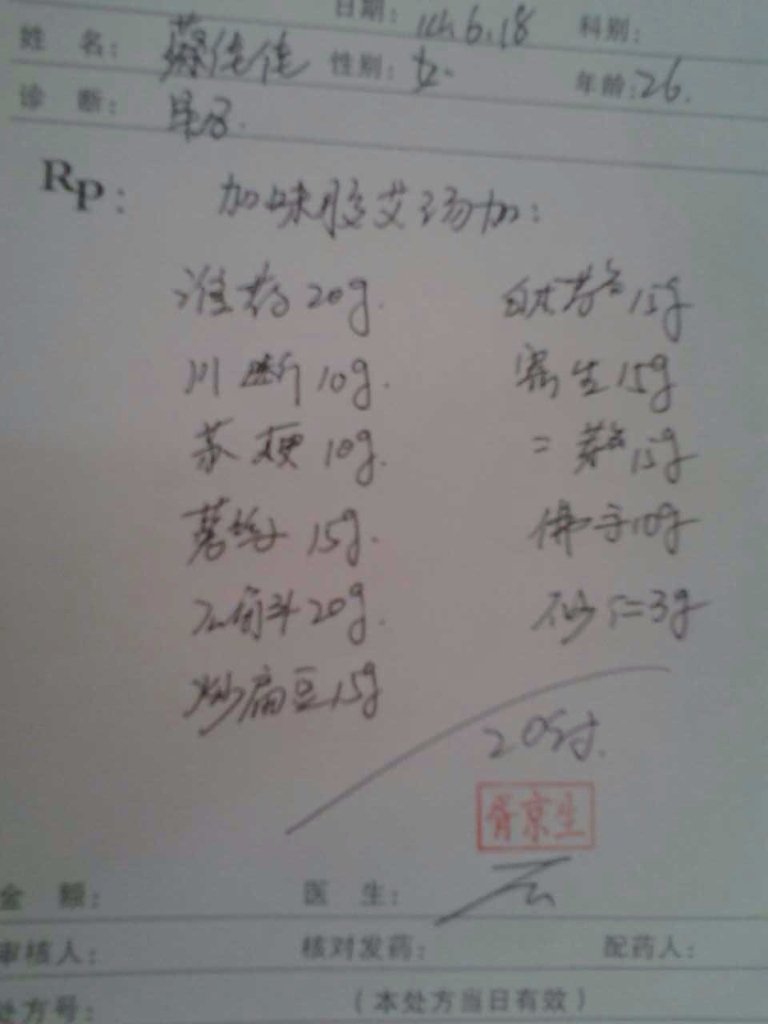 日期: 14.6.18 科别:
姓 名: 蔡佳佳 性别: 女. 年龄: 26.
诊 断: 早孕.
Rp: 加味胶艾汤加:
淮药 20g. 白术 15g
川断 10g. 寄生 15g
苏梗 10g. 二 15g
15g. 佛手 10g
20g. 砂仁 3g
炒扁豆 15g
20付.
京生
金 额: 医 生:
审核人: 核对发药: 配药人:
处方号: (本处方当日有效)